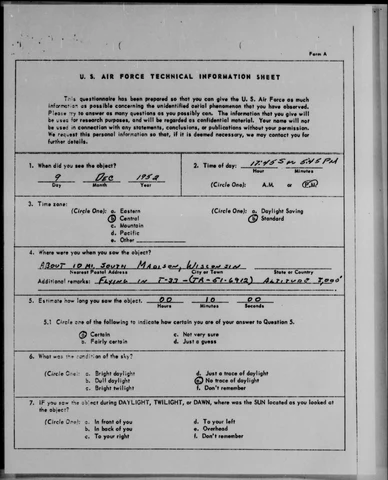 Form A
U. S. AIR FORCE TECHNICAL INFORMATION SHEET
This questionnaire has been prepared so that you can give the U. S. Air Force as much
information as possible concerning the unidentified aerial phenomenon that you have observed.
Please try to answer as many questions as you possibly can. The information that you give will
be used for research purposes, and will be regarded as confidential material. Your name will not
be used in connection with any statements, conclusions, or publications without your permission.
We request this personal information so that, if it is deemed necessary, we may contact you for
further details.
1. When did you see the object?
9 DEC 1952
Day Month Year
2. Time of day: 17:45 5 or 5:45 PM
Hour Minutes
(Circle One): A.M. or P.M.
3. Time zone:
(Circle One): a. Eastern
b. Central
c. Mountain
d. Pacific
e. Other
(Circle One): a. Daylight Saving
b. Standard
4. Where were you when you saw the object?
ABOUT 10 MI. SOUTH MADISON, WISCONSIN
Nearest Postal Address City or Town State or Country
Additional remarks: FLYING IN T-33 - (TA-51-6912) ALTITUDE 7,000'
5. Estimate how long you saw the object. 00 10 00
Hours Minutes Seconds
5.1 Circle one of the following to indicate how certain you are of your answer to Question 5.
a. Certain
b. Fairly certain
c. Not very sure
d. Just a guess
6. What was the condition of the sky?
(Circle One): a. Bright daylight
b. Dull daylight
c. Bright twilight
d. Just a trace of daylight
e. No trace of daylight
f. Don't remember
7. IF you saw the object during DAYLIGHT, TWILIGHT, or DAWN, where was the SUN located as you looked at
the object?
(Circle One): a. In front of you
b. In back of you
c. To your right
d. To your left
e. Overhead
f. Don't remember